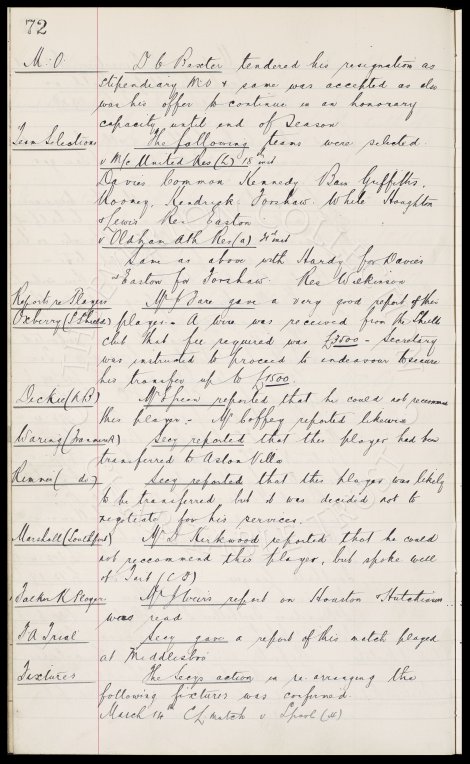 72
M.O. Dr C Baxter tendered his resignation as
stipendiary M.O & same was accepted as also
was his offer to continue in an honorary
capacity until end of season
Team Selections The following teams were selected.
v M/c United Res (L) 18th inst
Davies Common Kennedy Bain Griffiths.
Rooney, Kendrick Forshaw. White Houghton
& Lewis Res Easton
v Oldham Ath Res (a) 21st inst
Same as above with Hardy for Davies
& Easton for Forshaw. Res Wilkinson
Reports re Players Mr J Fare gave a very good report of this
Oxberry (S Shields) player. A wire was received from the Shields
club that fee required was £3500 - Secretary
was instructed to proceed to endeavour to secure
his transfer up to £1500.
Dickie (KB) Mr Green reported that he could not recommend
this player. Mr Coffey reported likewise
Waring (Tranmere R) Secy reported that this player had been
transferred to Aston Villa
Rimmer ( do ) Secy reported that this player was likely
to be transferred but it was decided not to
negotiate for his services.
Marshall (Southport) Mr D Kirkwood reported that he could
not reccommend this player, but spoke well
of (C.F)
Falkirk Players Mr J Weirs report on Houston & Hutchison
was read
F A Trial Secy gave a report of this match played
at Middlesbro
Fixtures The Secys action in re-arranging the
following fixtures was confirmed.
March 14th CL match v Lpool (H)